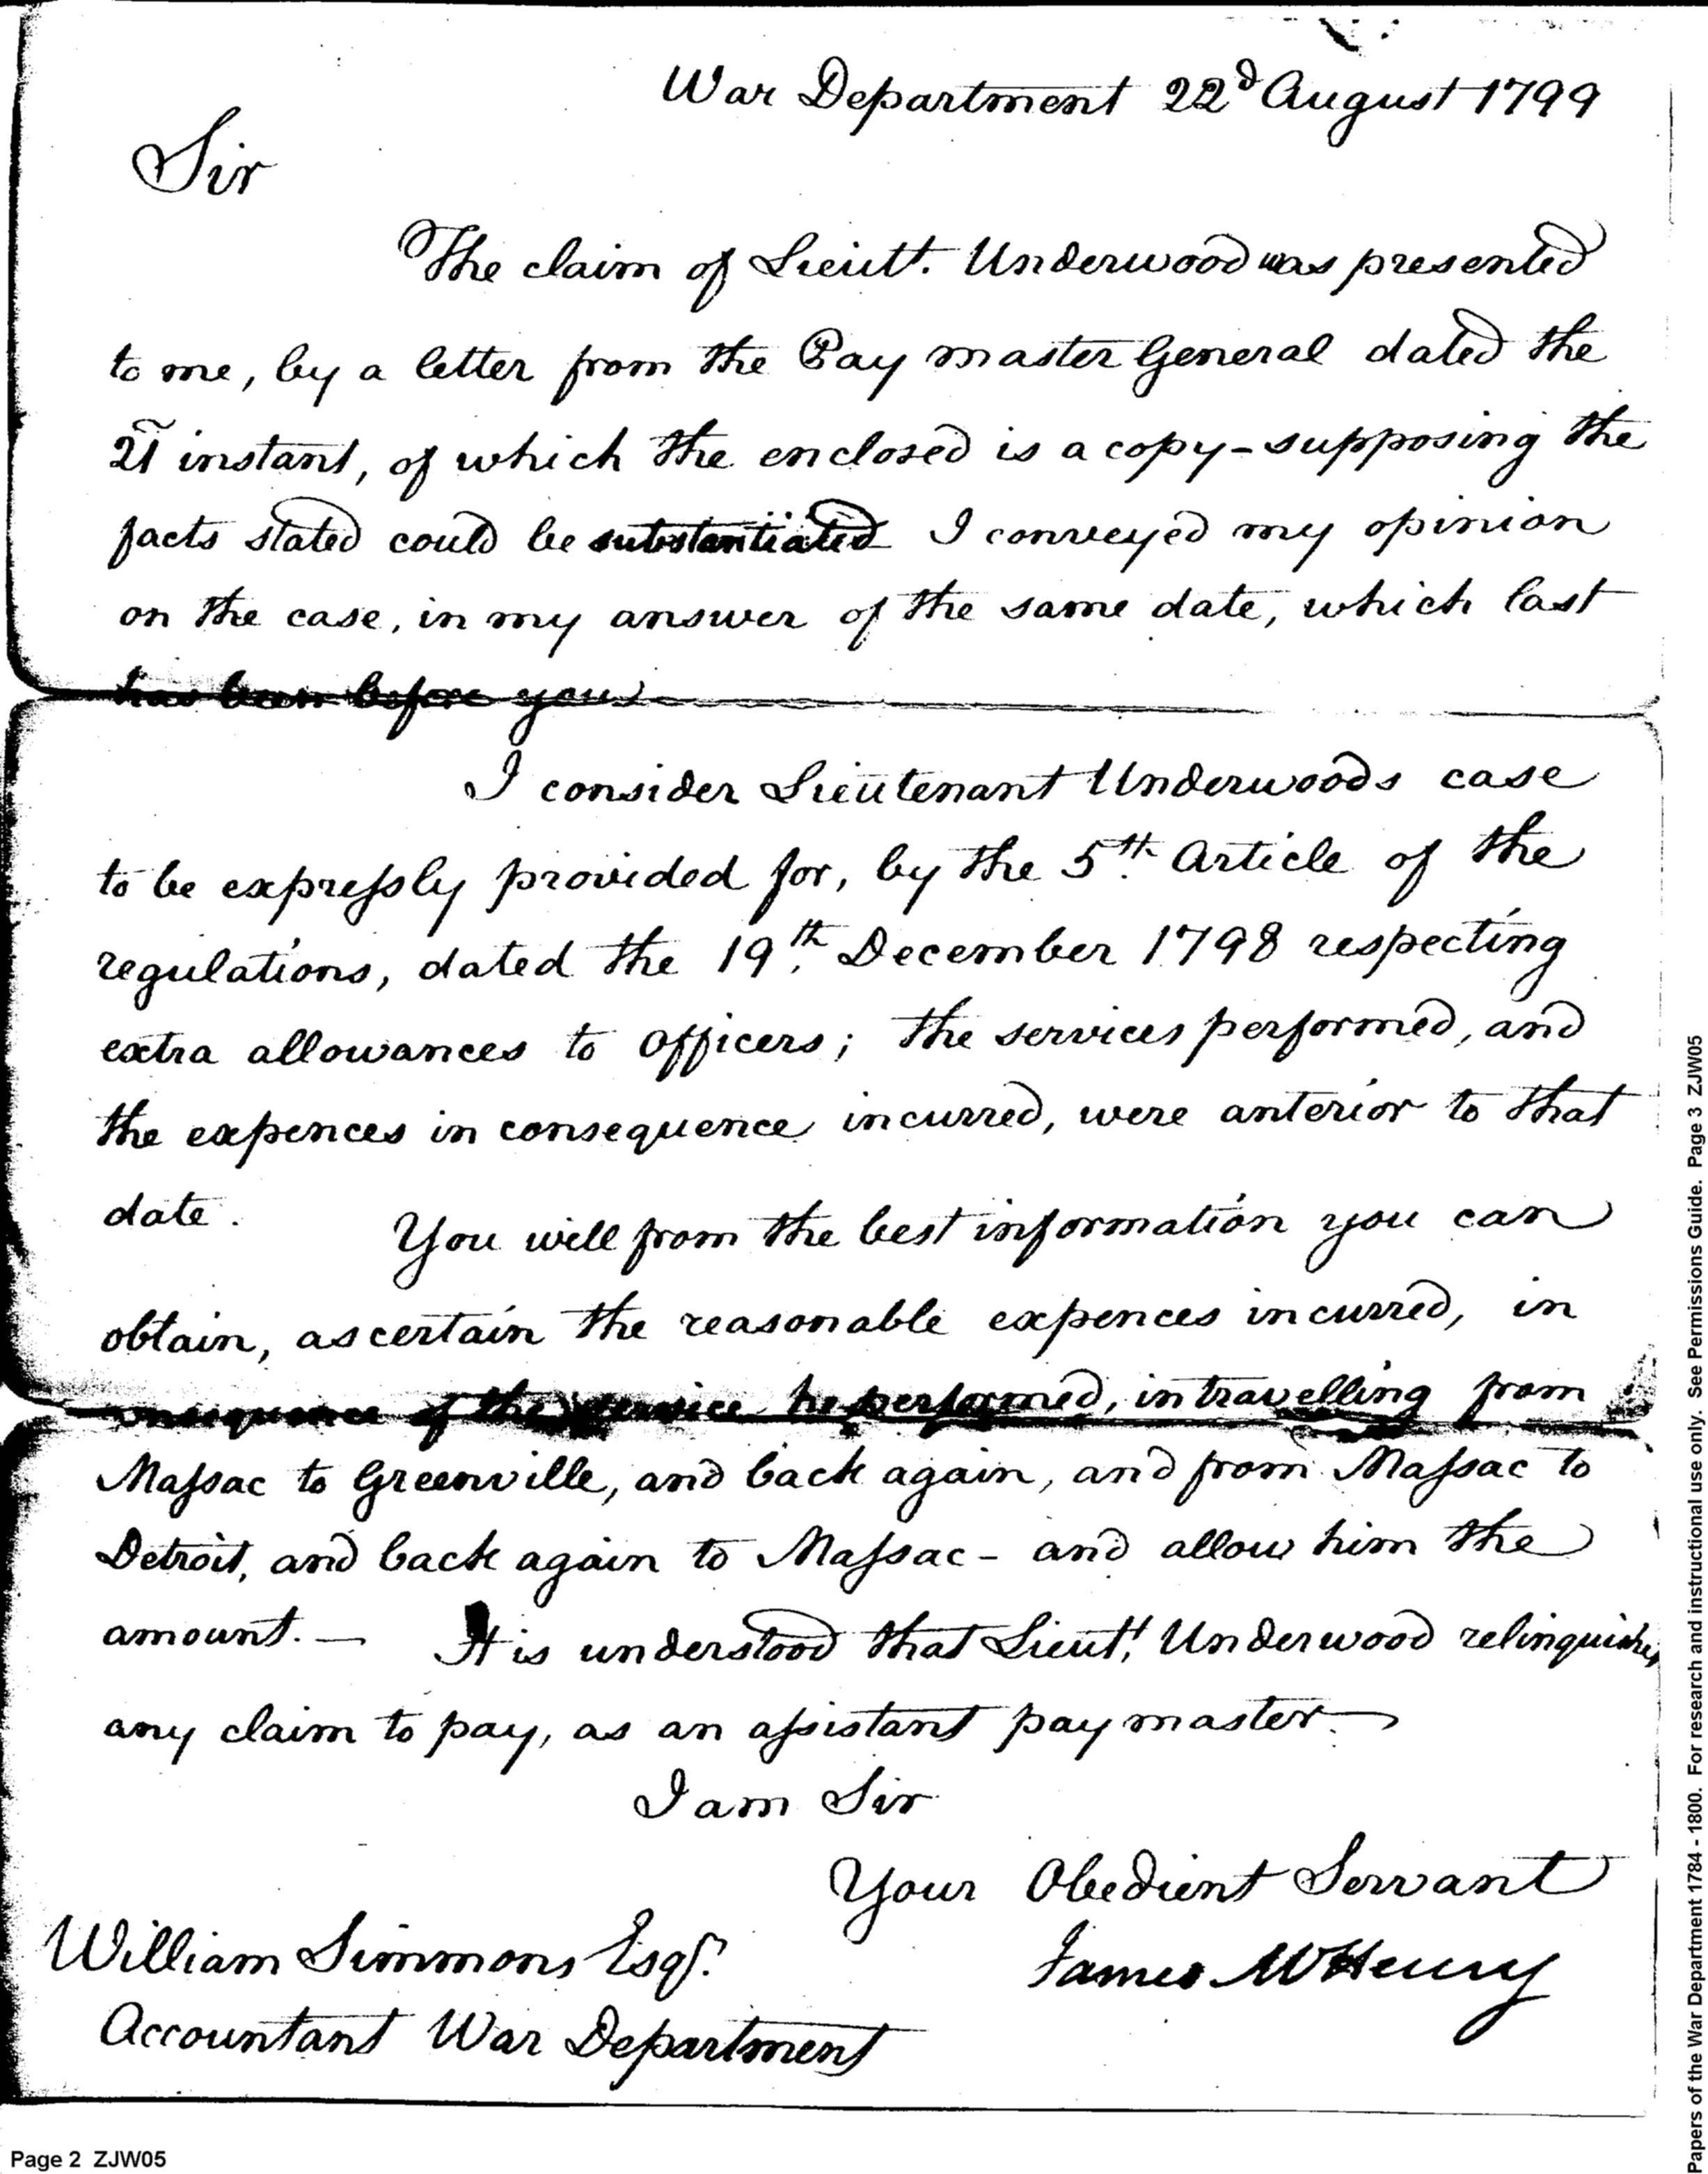 War Department 22d August 1799
Sir
The claim of Lieutt. Underwood was presented
to me, by a letter from the Pay master General dated the
21 instant, of which the enclosed is a copy - supposing the
facts stated could be substantiated I conveyed my opinion
on the case, in my answer of the same date, which last
has been before you
I consider Lieutenant Underwoods case
to be expressly provided for, by the 5th. Article of the
regulations, dated the 19th. December 1798 respecting
extra allowances to officers; the services performed, and
the expences in consequence incurred, were anterior to that
date.
You will from the best information you can
obtain, ascertain the reasonable expences incurred, in
consequence of the service he performed, in travelling from
Massac to Greenville, and back again, and from Massac to
Detroit, and back again to Massac - and allow him the
amount. — It is understood that Lieutt. Underwood relinquishes
any claim to pay, as an assistant paymaster. —
I am Sir
Your Obedient Servant
James McHenry
William Simmons Esqr.
Accountant War Department
Page 2 ZJW05
Papers of the War Department 1784 - 1800. For research and instructional use only. See Permissions Guide. Page 3 ZJW05